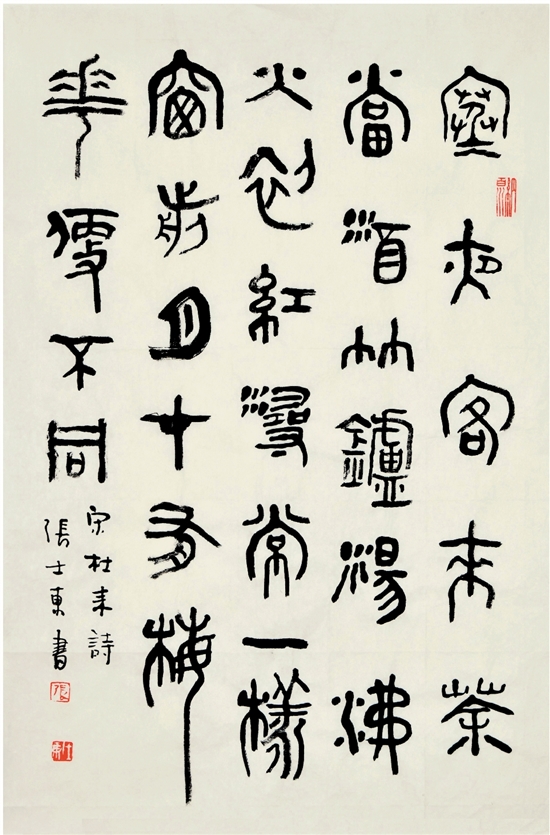 寒夜客來茶
當酒竹鑪湯沸
火初紅尋常一樣
窗前月才有梅
華便不同
宋杜耒詩
張士東書
張
士東